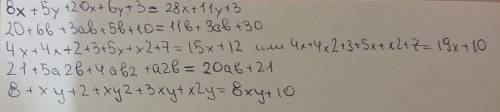 8x+5y+20x+6y+3=28x+11y+3
20+6в+3ав+5в+10=11в+3ав+30
4x+4x+2+3+5x+x2+7=15x+12 или 4x+4x2+3+5x+x2+7=19x+10
21+5а2в+4ав2+а2в=20ав+21
8+xy+2+xy2+3xy+x2y=8xy+10